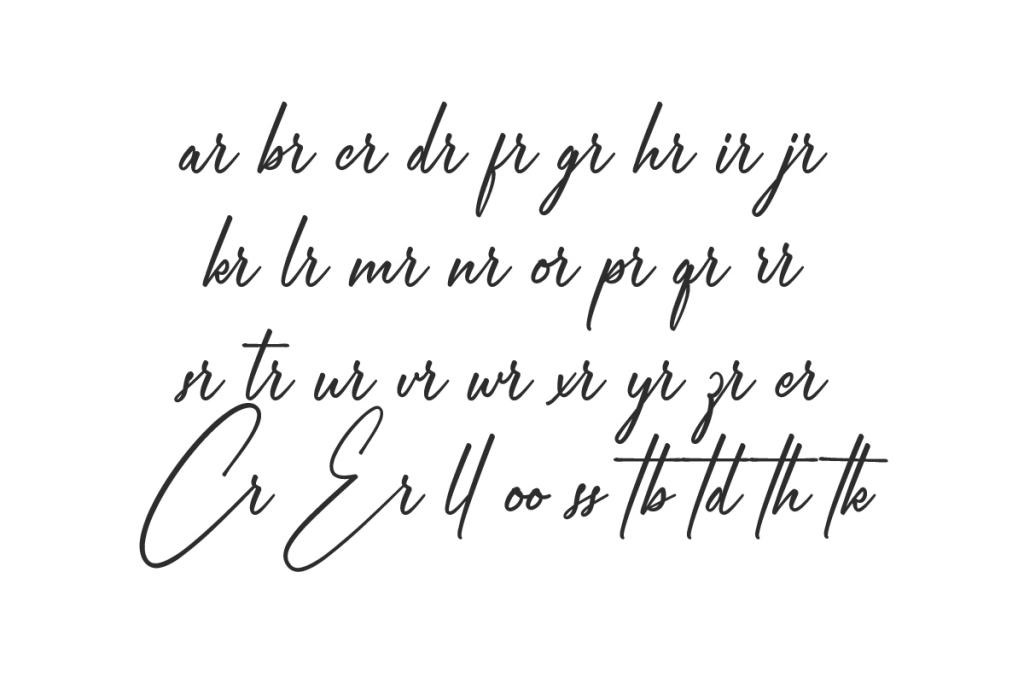 ar br cr dr fr gr hr ir jr
kr lr mr nr or pr qr rr
sr tr ur vr wr xr yr zr er
Cr Er ll oo ss tb td th tk